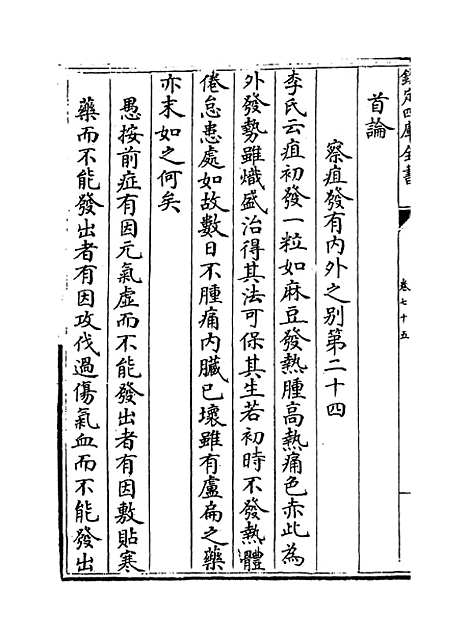 欽定四庫全書
卷七十五
一
首論
察疽發有内外之别第二十四
李氏云疽初發一粒如麻豆發熱腫高熱痛色赤此為
外發勢雖熾盛治得其法可保其生若初時不發熱體
倦怠患處如故數日不腫痛内臟已壞雖有盧扁之藥
亦末如之何矣
愚按前症有因元氣虛而不能發出者有因敷貼寒
藥而不能發出者有因攻伐過傷氣血而不能發出